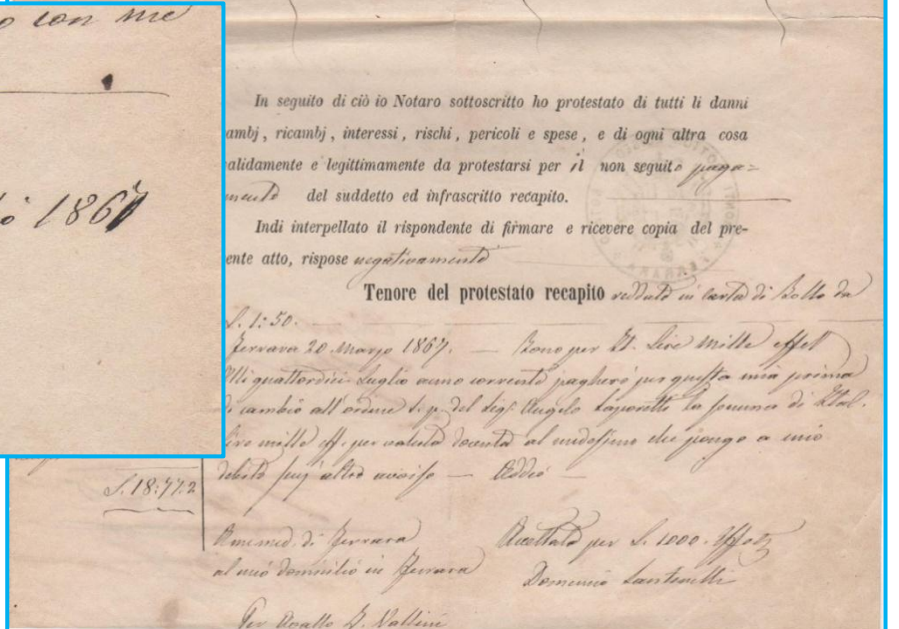 o con me
1867
In seguito di ciò io Notaro sottoscritto ho protestato di tutti li danni
ambj, ricambj, interessi, rischi, pericoli e spese, e di ogni altra cosa
alidamente e legittimamente da protestarsi per il non seguito paga=
mento del suddetto ed infrascritto recapito.
Indi interpellato il rispondente di firmare e ricevere copia del pre-
ente atto, rispose negativamente
Tenore del protestato recapito redatto in carta di Bollo da
L. 1:50.
Ferrara 20 Marzo 1867. — Bono per It. Lire Mille effet
Alli quattordici Luglio anno corrente pagherò per questa mia prima
di cambio all'ordine s. p. del Sig. Angelo la somma di Ital.
Lire mille eff. per valuta al medesimo che pongo a mio
debito senz'altro avviso — Addio —
L. 18:77.2
di Ferrara
al mio domicilio in Ferrara
Accettato per L. 1000.
Domenico Santinelli
Per